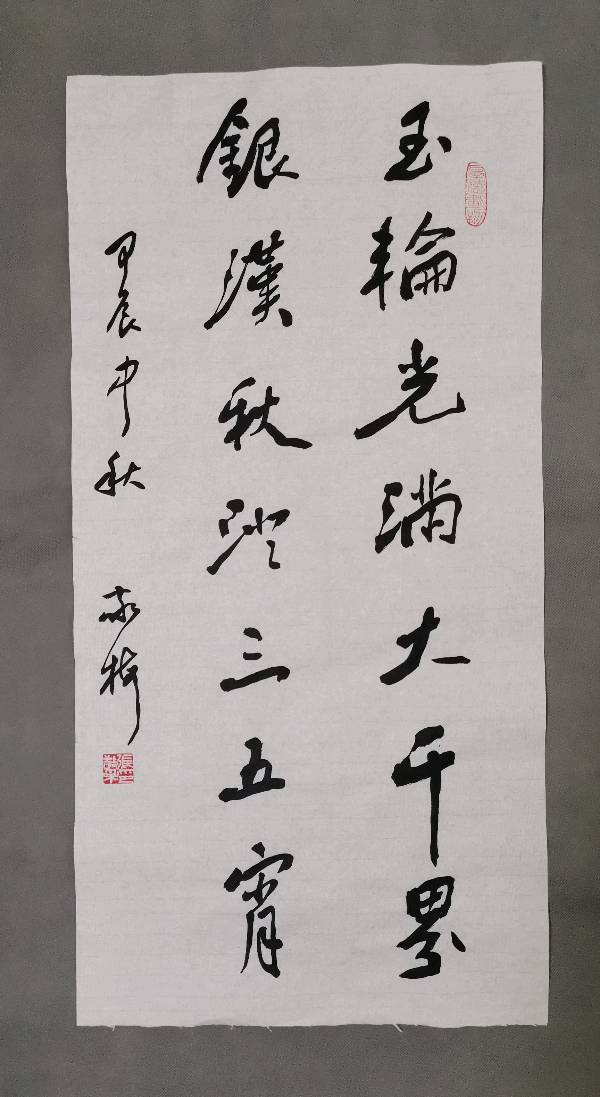 玉輪光滿大千界
銀漢秋澄三五宵
甲辰中秋